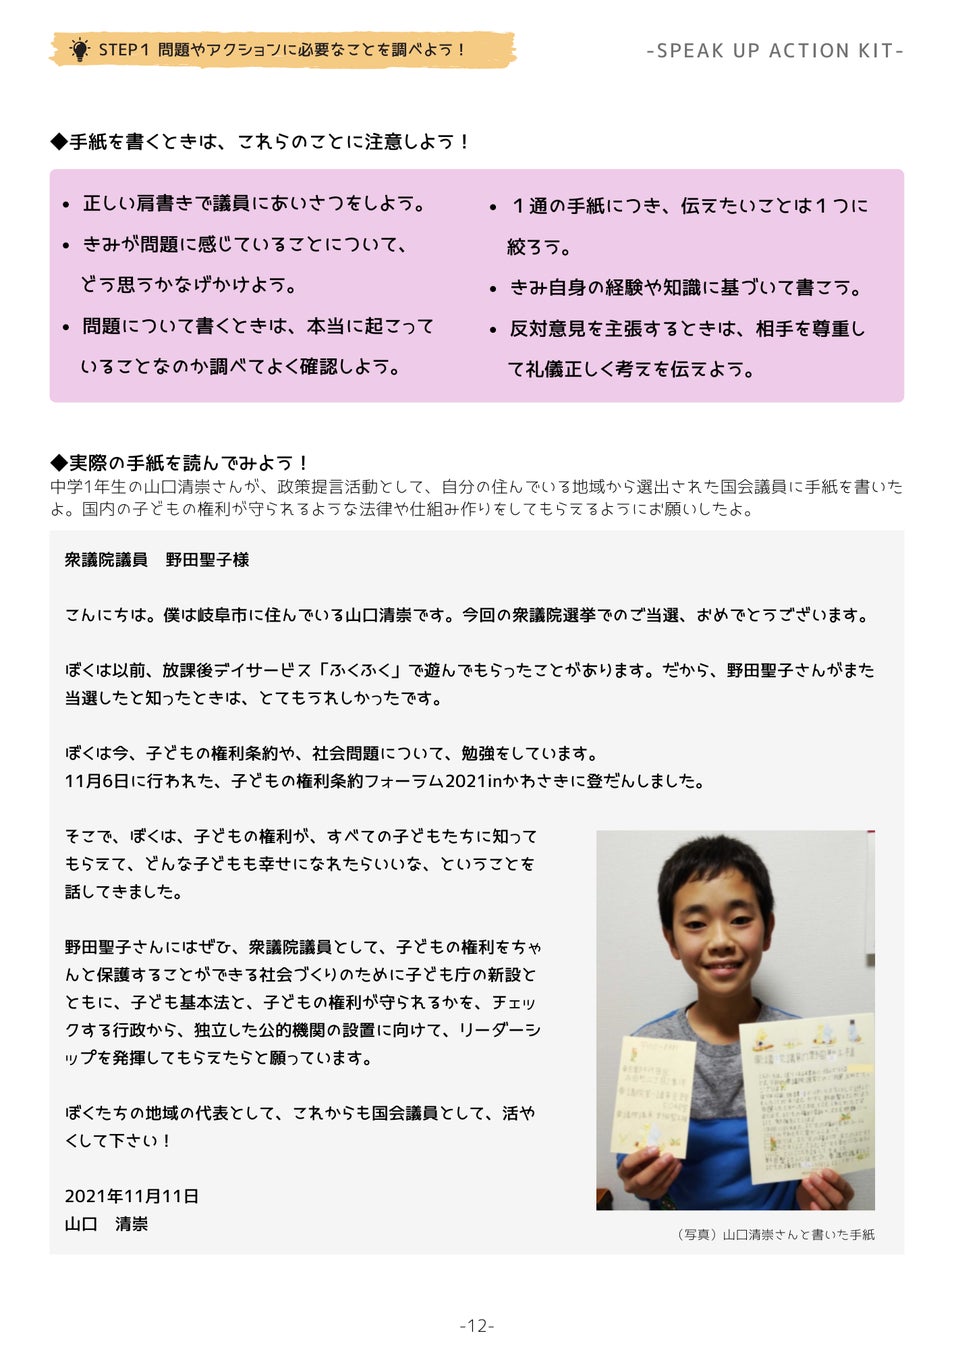 STEP1 問題やアクションに必要なことを調べよう！
-SPEAK UP ACTION KIT-
◆手紙を書くときは、これらのことに注意しよう！
• 正しい肩書きで議員にあいさつをしよう。
• きみが問題に感じていることについて、
どう思うかなげかけよう。
• 問題について書くときは、本当に起こって
いることなのか調べてよく確認しよう。
• １通の手紙につき、伝えたいことは１つに
絞ろう。
• きみ自身の経験や知識に基づいて書こう。
• 反対意見を主張するときは、相手を尊重し
て礼儀正しく考えを伝えよう。
◆実際の手紙を読んでみよう！
中学1年生の山口清崇さんが、政策提言活動として、自分の住んでいる地域から選出された国会議員に手紙を書いた
よ。国内の子どもの権利が守られるような法律や仕組み作りをしてもらえるようにお願いしたよ。
衆議院議員　野田聖子様
こんにちは。僕は岐阜市に住んでいる山口清崇です。今回の衆議院選挙でのご当選、おめでとうございます。
ぼくは以前、放課後デイサービス「ふくふく」で遊んでもらったことがあります。だから、野田聖子さんがまた
当選したと知ったときは、とてもうれしかったです。
ぼくは今、子どもの権利条約や、社会問題について、勉強をしています。
11月6日に行われた、子どもの権利条約フォーラム2021inかわさきに登だんしました。
そこで、ぼくは、子どもの権利が、すべての子どもたちに知って
もらえて、どんな子どもも幸せになれたらいいな、ということを
話してきました。
野田聖子さんにはぜひ、衆議院議員として、子どもの権利をちゃ
んと保護することができる社会づくりのために子ども庁の新設と
ともに、子ども基本法と、子どもの権利が守られるかを、チェッ
クする行政から、独立した公的機関の設置に向けて、リーダーシ
ップを発揮してもらえたらと願っています。
ぼくたちの地域の代表として、これからも国会議員として、活や
くして下さい！
2021年11月11日
山口　清崇
（写真）山口清崇さんと書いた手紙
-12-